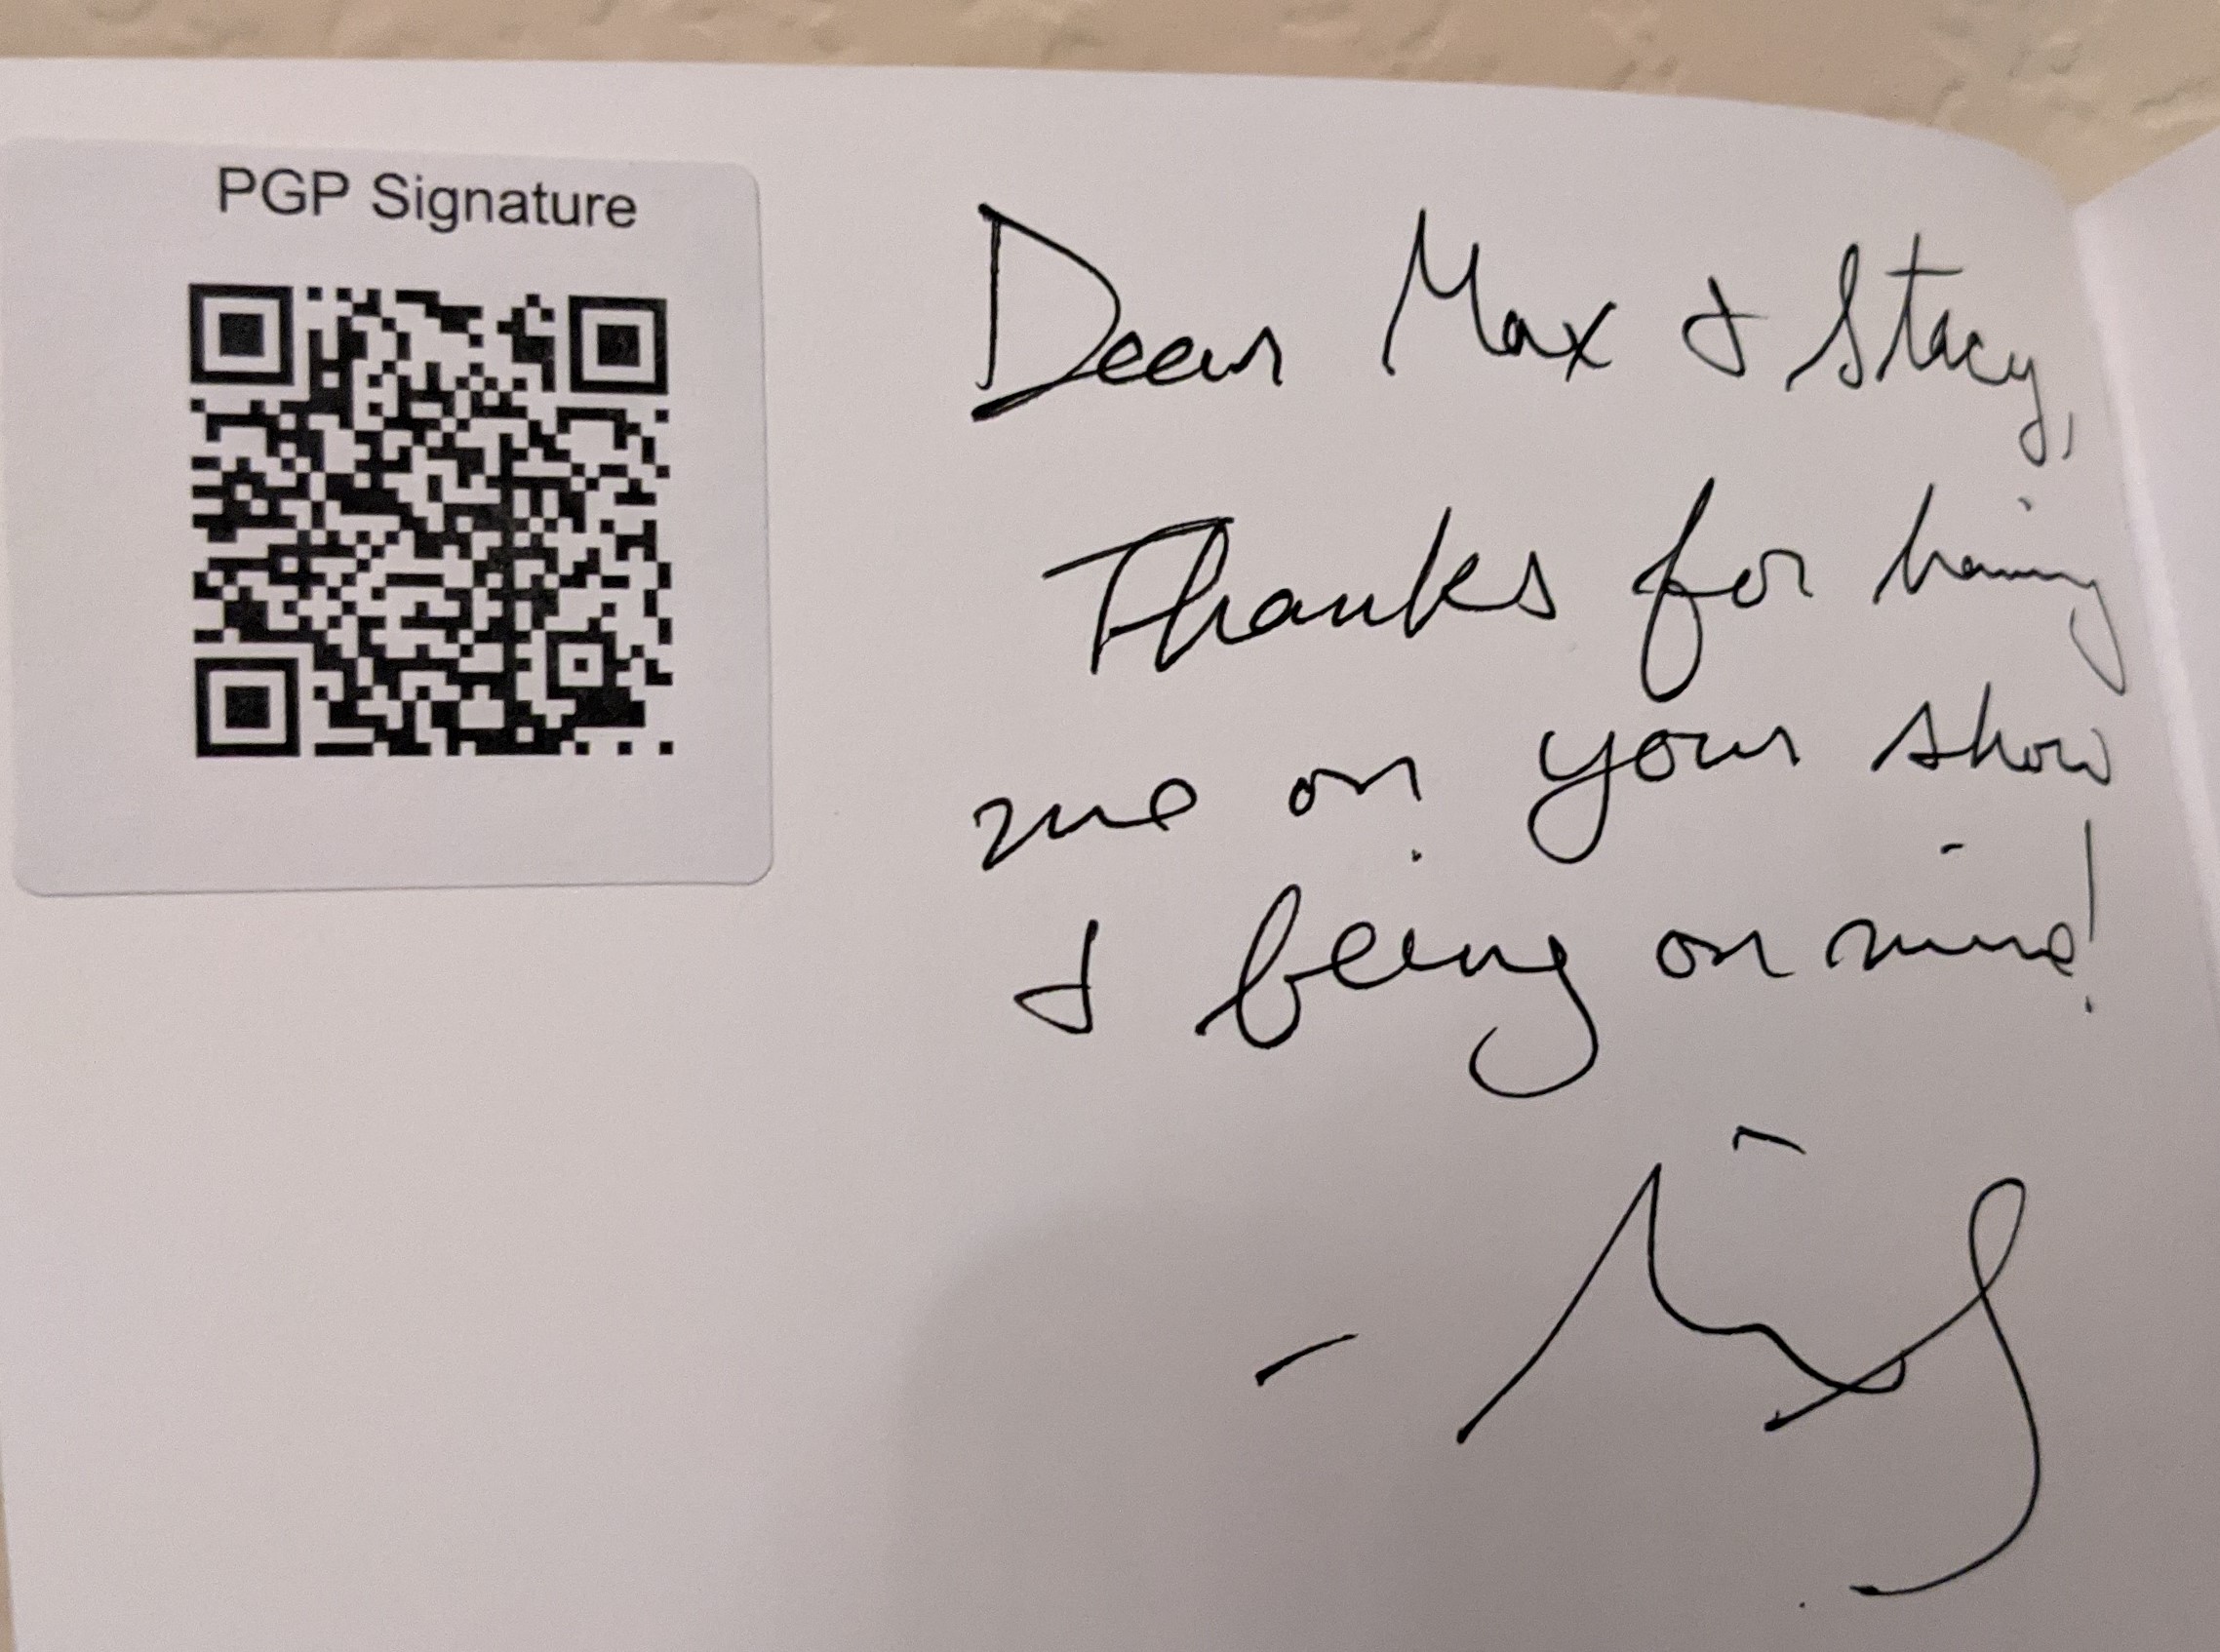 PGP Signature
Dear Max & Stacy,
Thanks for having
me on your show
& being on mine!